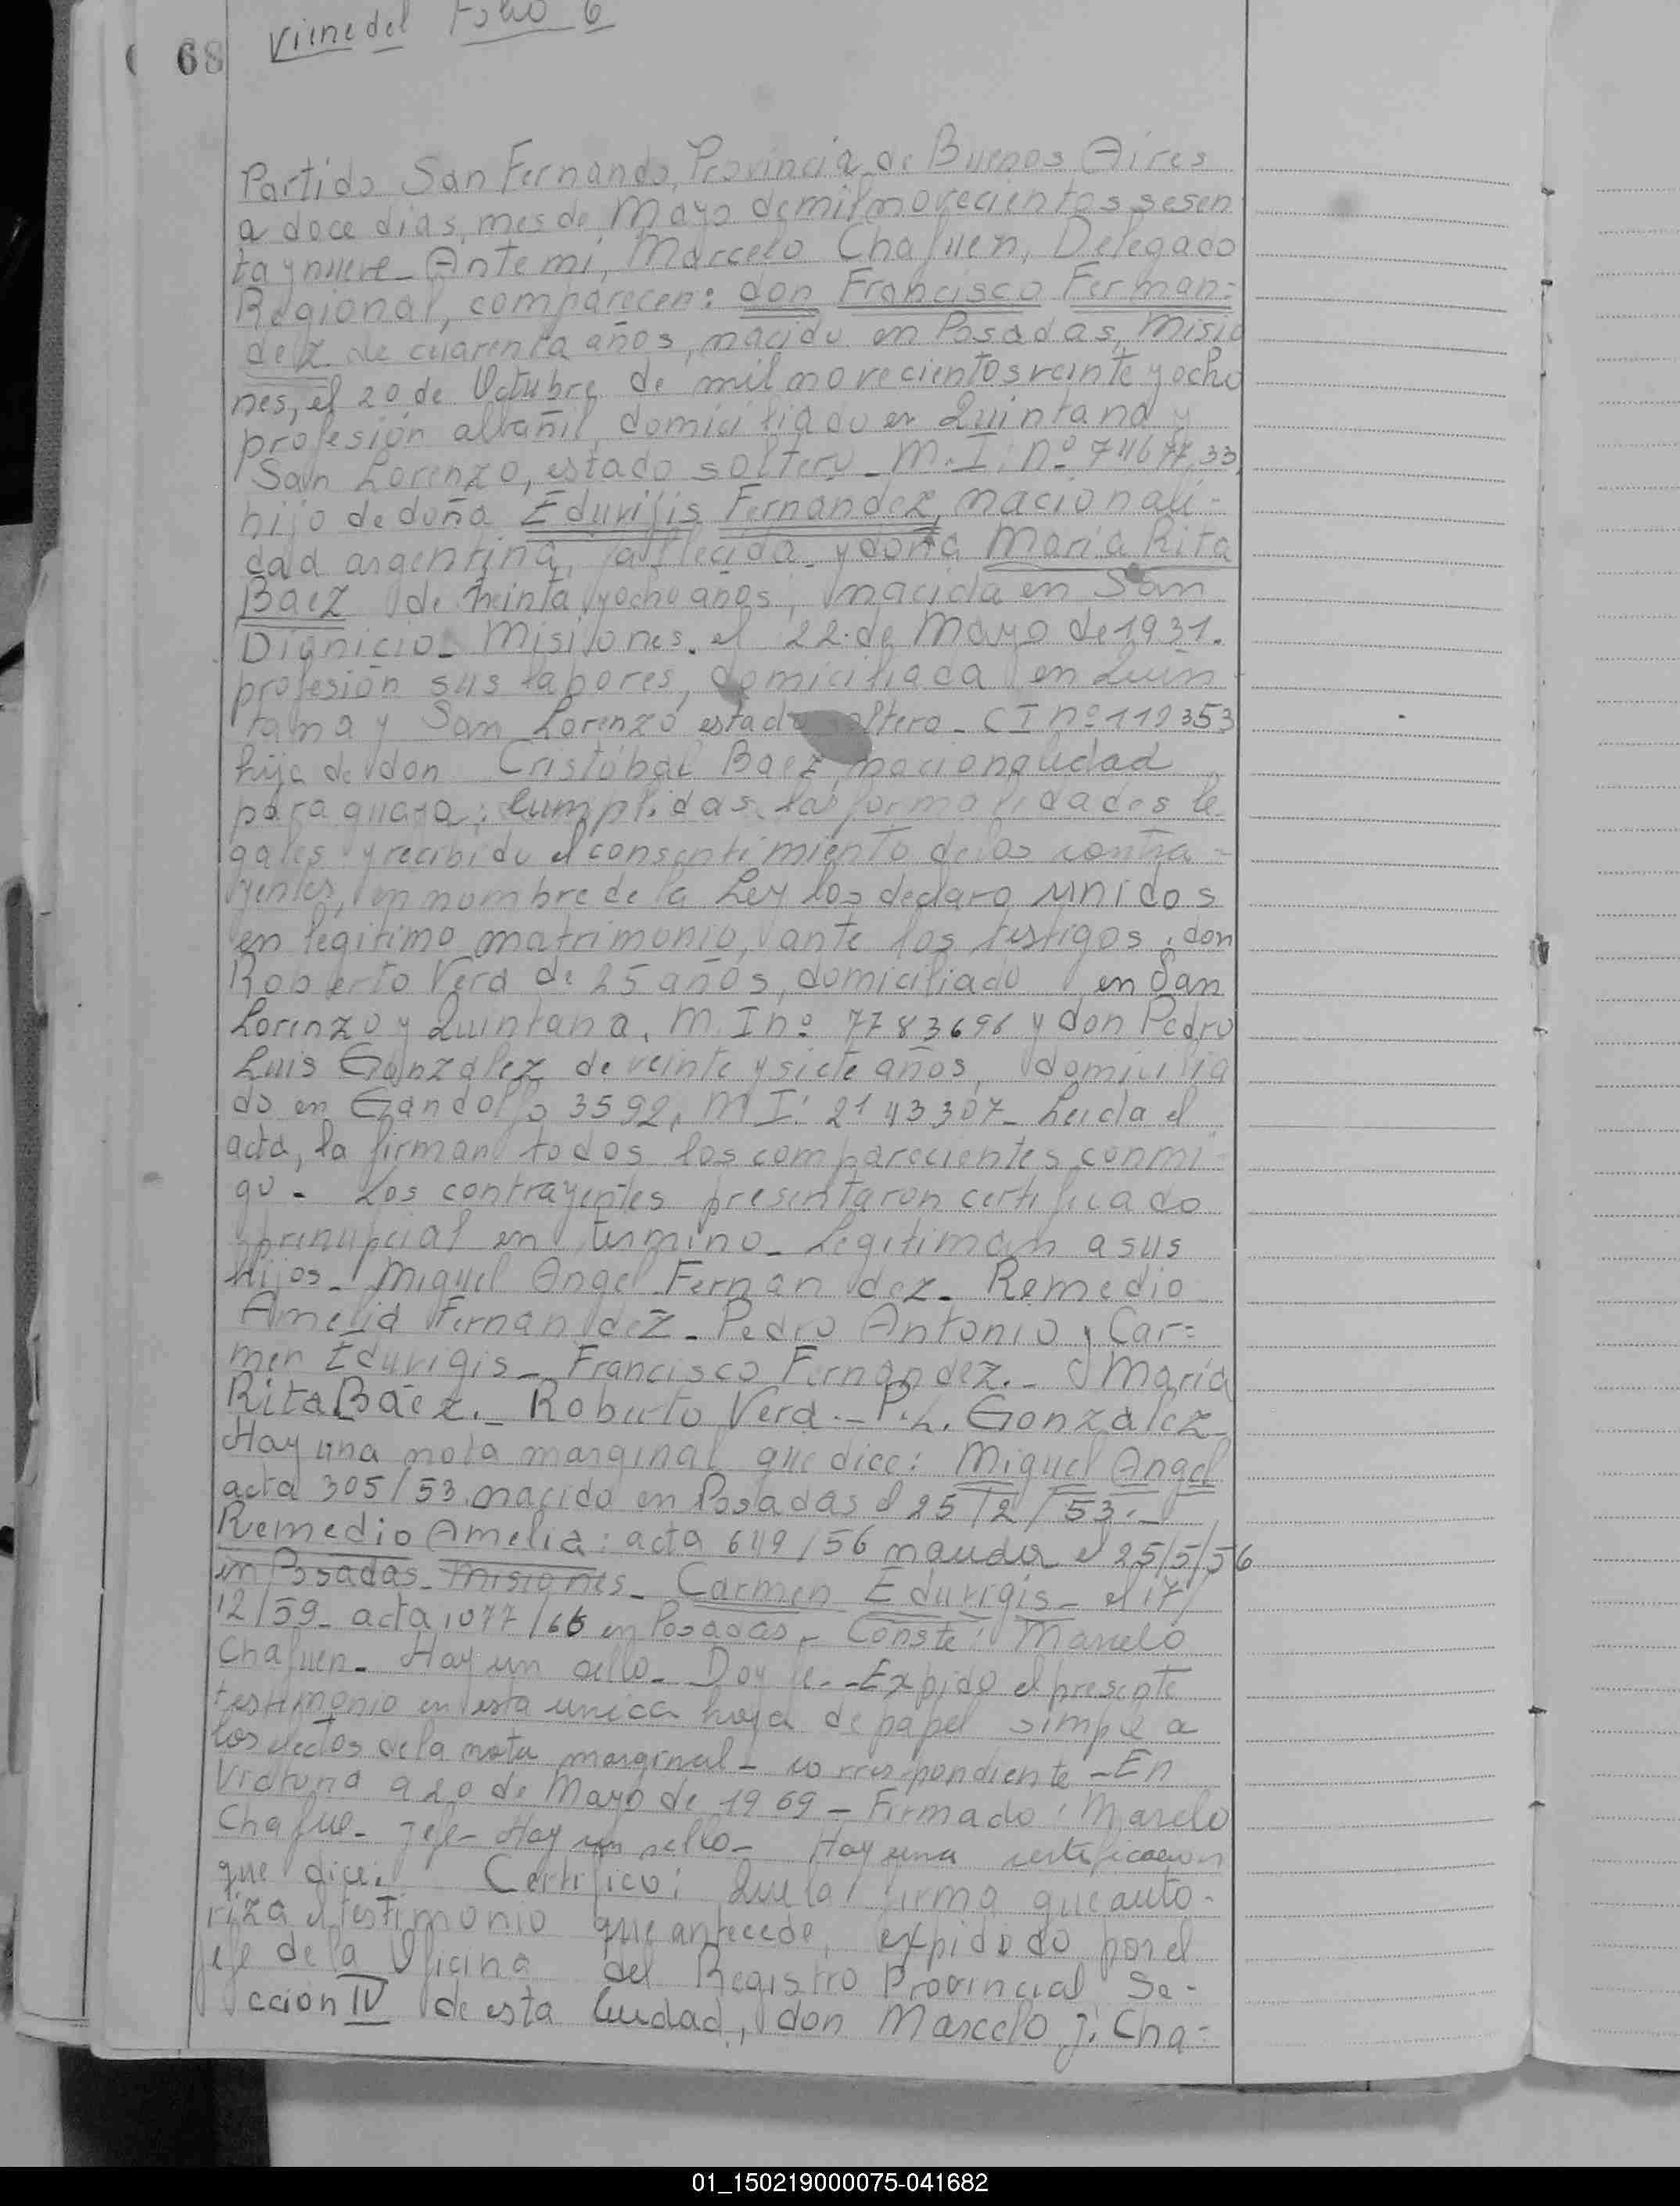 Viene del Folio 6
68
Partido San Fernando, Provincia de Buenos Aires
a doce dias, mes de Mayo de mil novecientos sesen
ta y nueve_ Ante mi, Marcelo Chafuen, Delegado
Regional, comparecen: don Francisco Fernan=
dez de cuarenta años, nacido en Posadas, Misio
nes, el 20 de Octubre de mil novecientos veinte y ocho
profesión albañil, domiciliado en Quintana y
San Lorenzo, estado soltero_ M.I. nº
hijo de doña Eduvijis Fernandez, nacionali-
dad argentina, fallecida_ y doña María Rita
Baez de treinta y ocho años, nacida en San
Dignicio_ Misiones. el 22 de Mayo de 1931.
profesión sus labores, domiciliada en Quin
tana y San Lorenzo estado soltera_ CI nº 119353
hija de don Cristóbal Baez, nacionalidad
paraguaya; Cumplidas las formalidades le
gales y recibido el consentimiento de los contra=
yentes, en nombre de la Ley los declaro unidos
en legitimo matrimonio, ante los testigos, don
Roberto Vera de 25 años, domiciliado en San
Lorenzo y Quintana. M.I nº 7783696 y don Pedro
Luis Gonzalez de veinte y siete años, domicilia
do en Gandolfo 3592, M I: 2143307_ Leida el
acta, la firman todos los comparecientes conmi-
go_ Los contrayentes presentaron certificado
prenupcial en termino_ Legitiman a sus
hijos_ Miguel Angel Fernandez_ Remedio
Amelia Fernandez_ Pedro Antonio y Car=
men Eduvigis_ Francisco Fernandez._ María
Rita Báez._ Roberto Vera._ P.L. Gonzalez_
Hay una nota marginal que dice: Miguel Angel
acta 305/53 nacido en Posadas el 25/2/53._
Remedio Amelia: acta 649/56 el 25/5/56
en Posadas_ Misiones_ Carmen Eduvigis_ el 17/
12/59_ acta 1077/66 en Posadas_ Conste: Marcelo
Chafuen_ Hay un sello_ Doy fe._ Expido el presente
testimonio en esta unica hoja de papel simple a
los efectos de la nota marginal_ correspondiente_ En
Victoria a 20 de Mayo de 1969_ Firmado: Marcelo
Chafue_ Jefe_ Hay un sello_ Hay una certificacion
que dice: Certifico: Que la firma que auto-
riza el testimonio que antecede, expidido por el
jefe de la Oficina del Registro Provincial Se-
ccion IV de esta Ciudad, don Marcelo J. Cha=
01_150219000075-041682